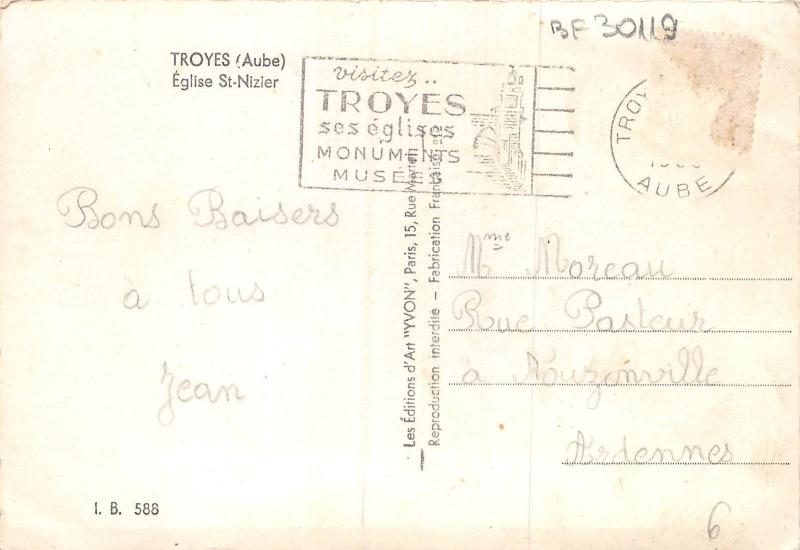 BF 30119
TROYES (Aube)
Église St-Nizier
visitez..
TROYES
ses églises
MONUMENTS
MUSÉES
TROY
AUBE
Bons Baisers
à tous
Jean
Les Éditions d'Art "YVON", Paris, 15, Rue Martel
Reproduction interdite – Fabrication Française
Mme Moreau
Rue Pasteur
à Nouzonville
Ardennes
I. B. 588
6